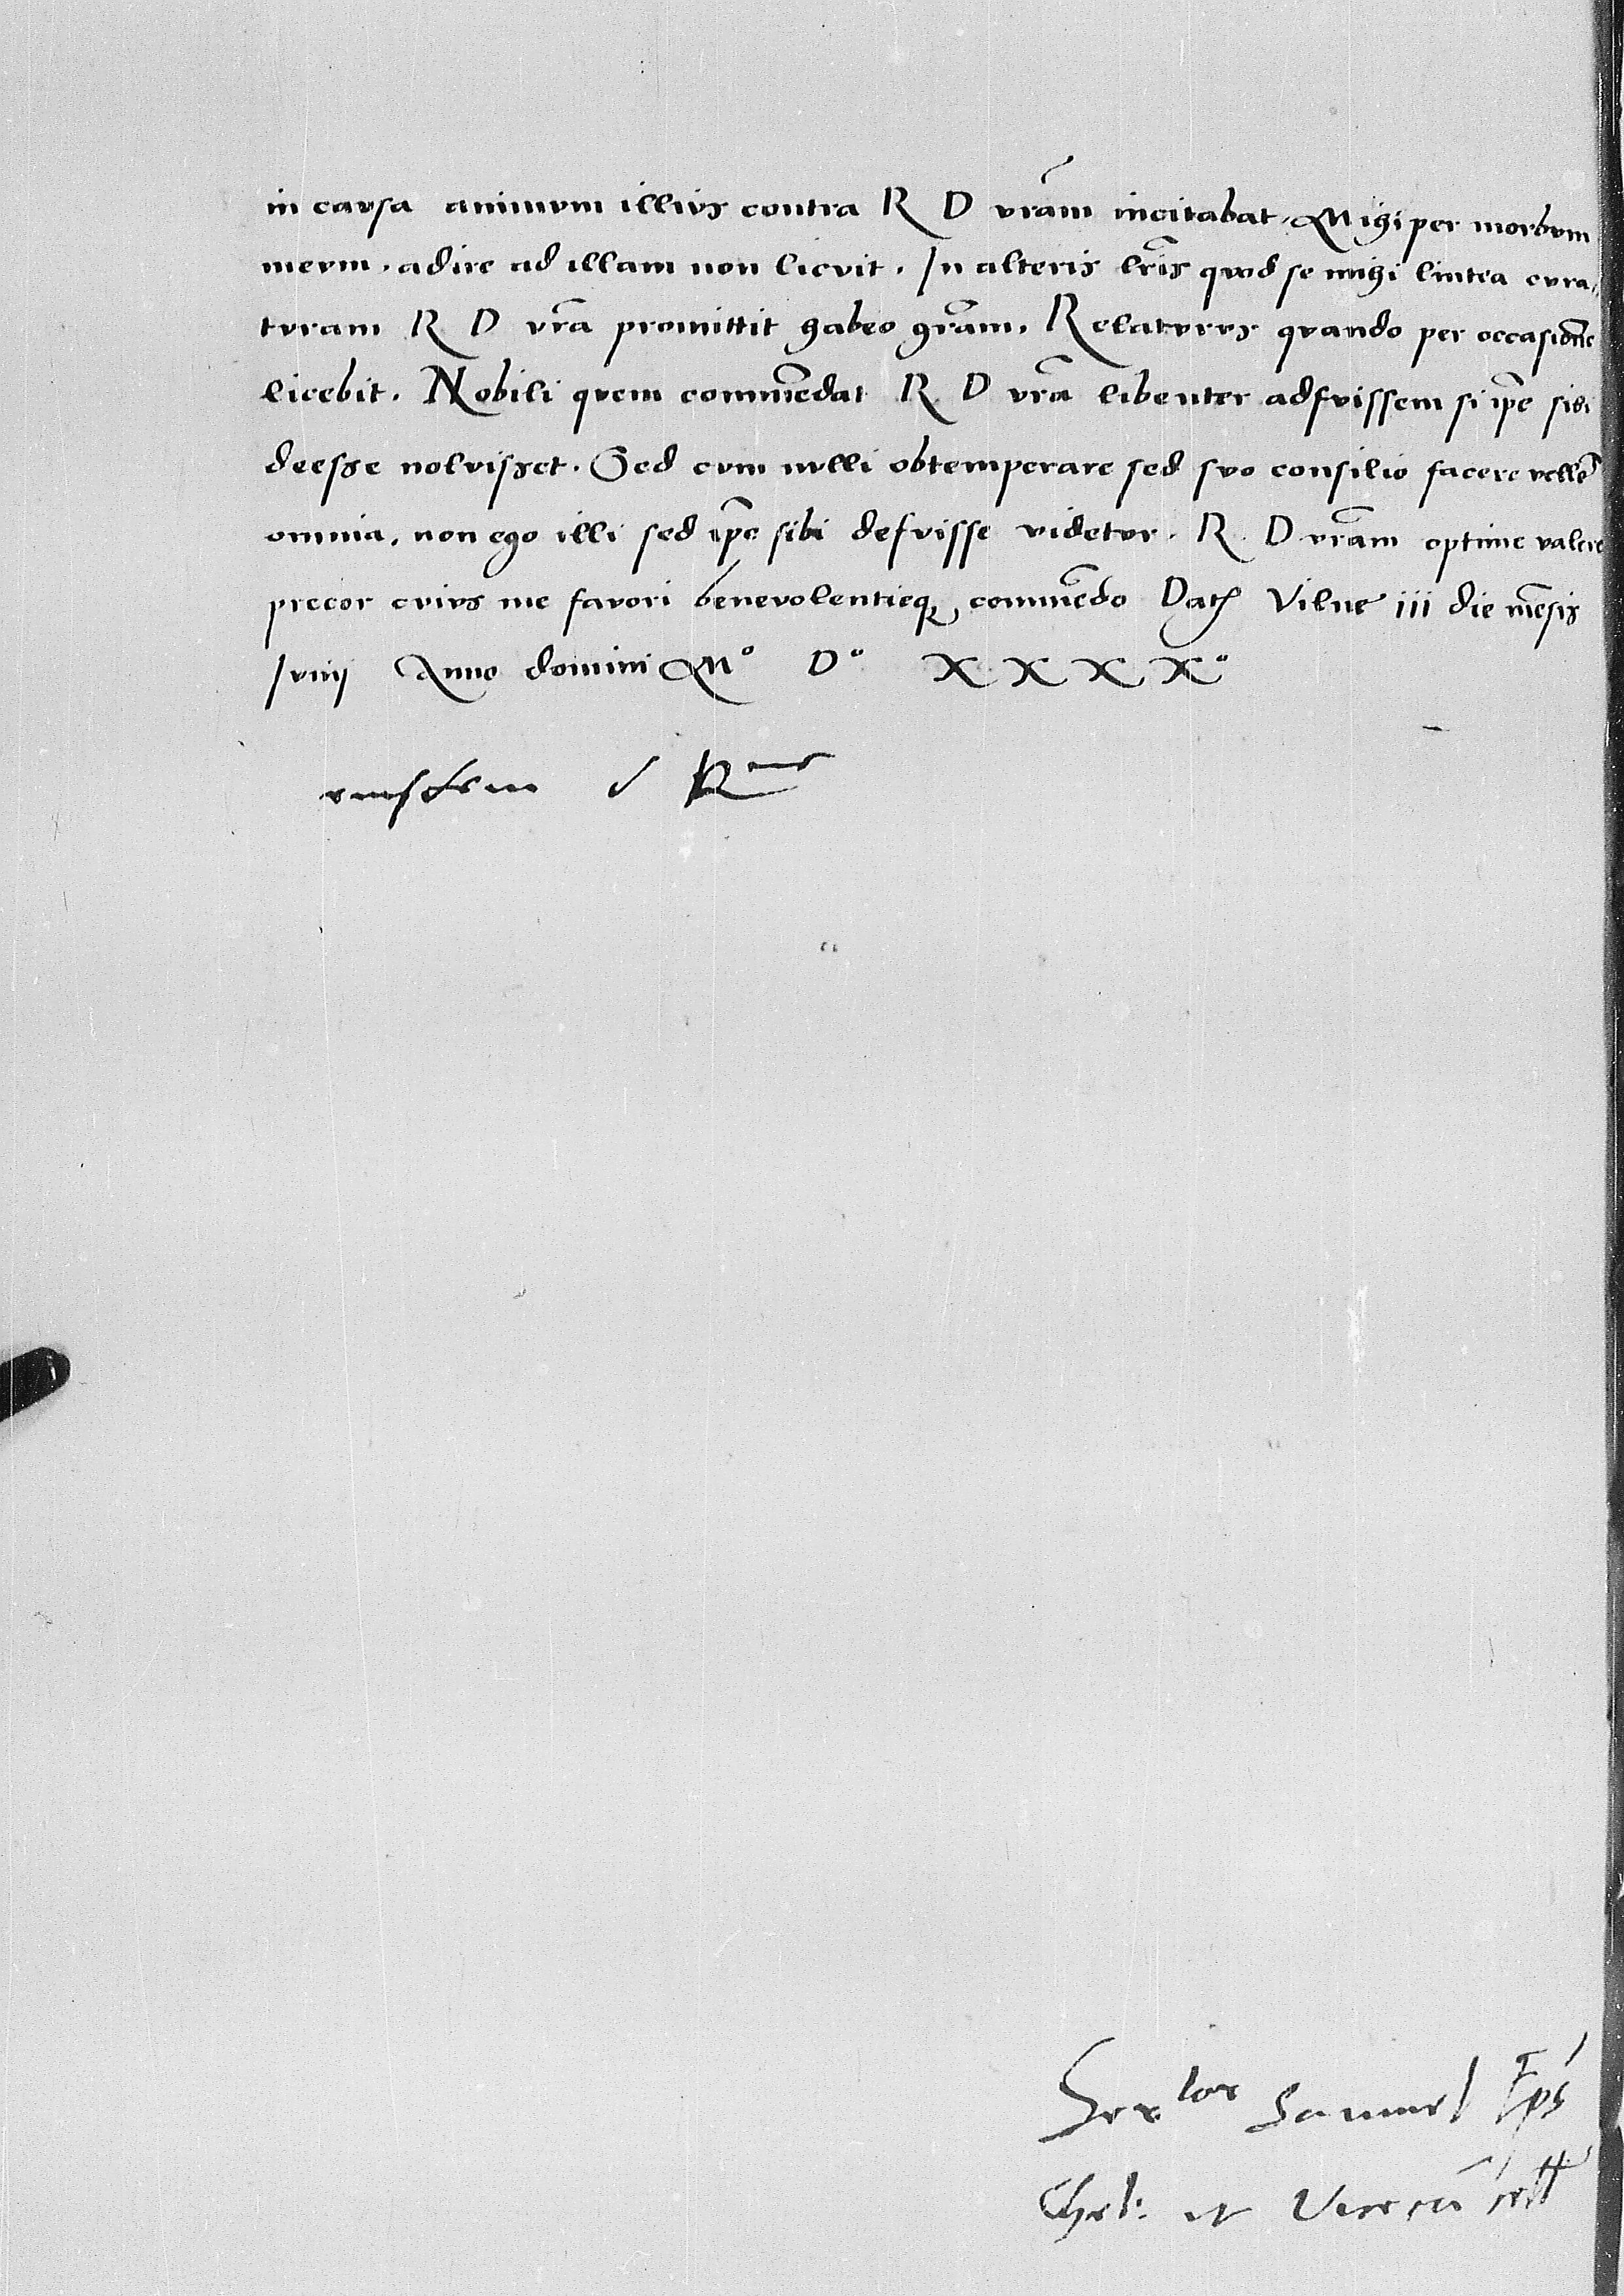 in causa animum illius contra R D vrãm incitabat. Mihi per morbum
meum. adire ad illam non licuit. In alteris lr̃is quod se mihi lintea cura„
turam R D vr̃a promittit habeo gr̃am. Relaturus quando per occasionẽ
licebit. Nobili quem commẽdat R. D vr̃a libenter adfuissem si ip̃e sibi
deesse noluisset. Sed cum nulli obtemperare sed suo consilio facere vellẽt
omnia. non ego illi sed ip̃e sibi defuisse videtur. R. D vr̃am optime valere
precor cuius me favori benevolentieq, commẽdo Dat Vilne iii die mẽsis
Junij Anno domini Mº Dº XXXXº
eiusdem d R
Samuel Ep̃s